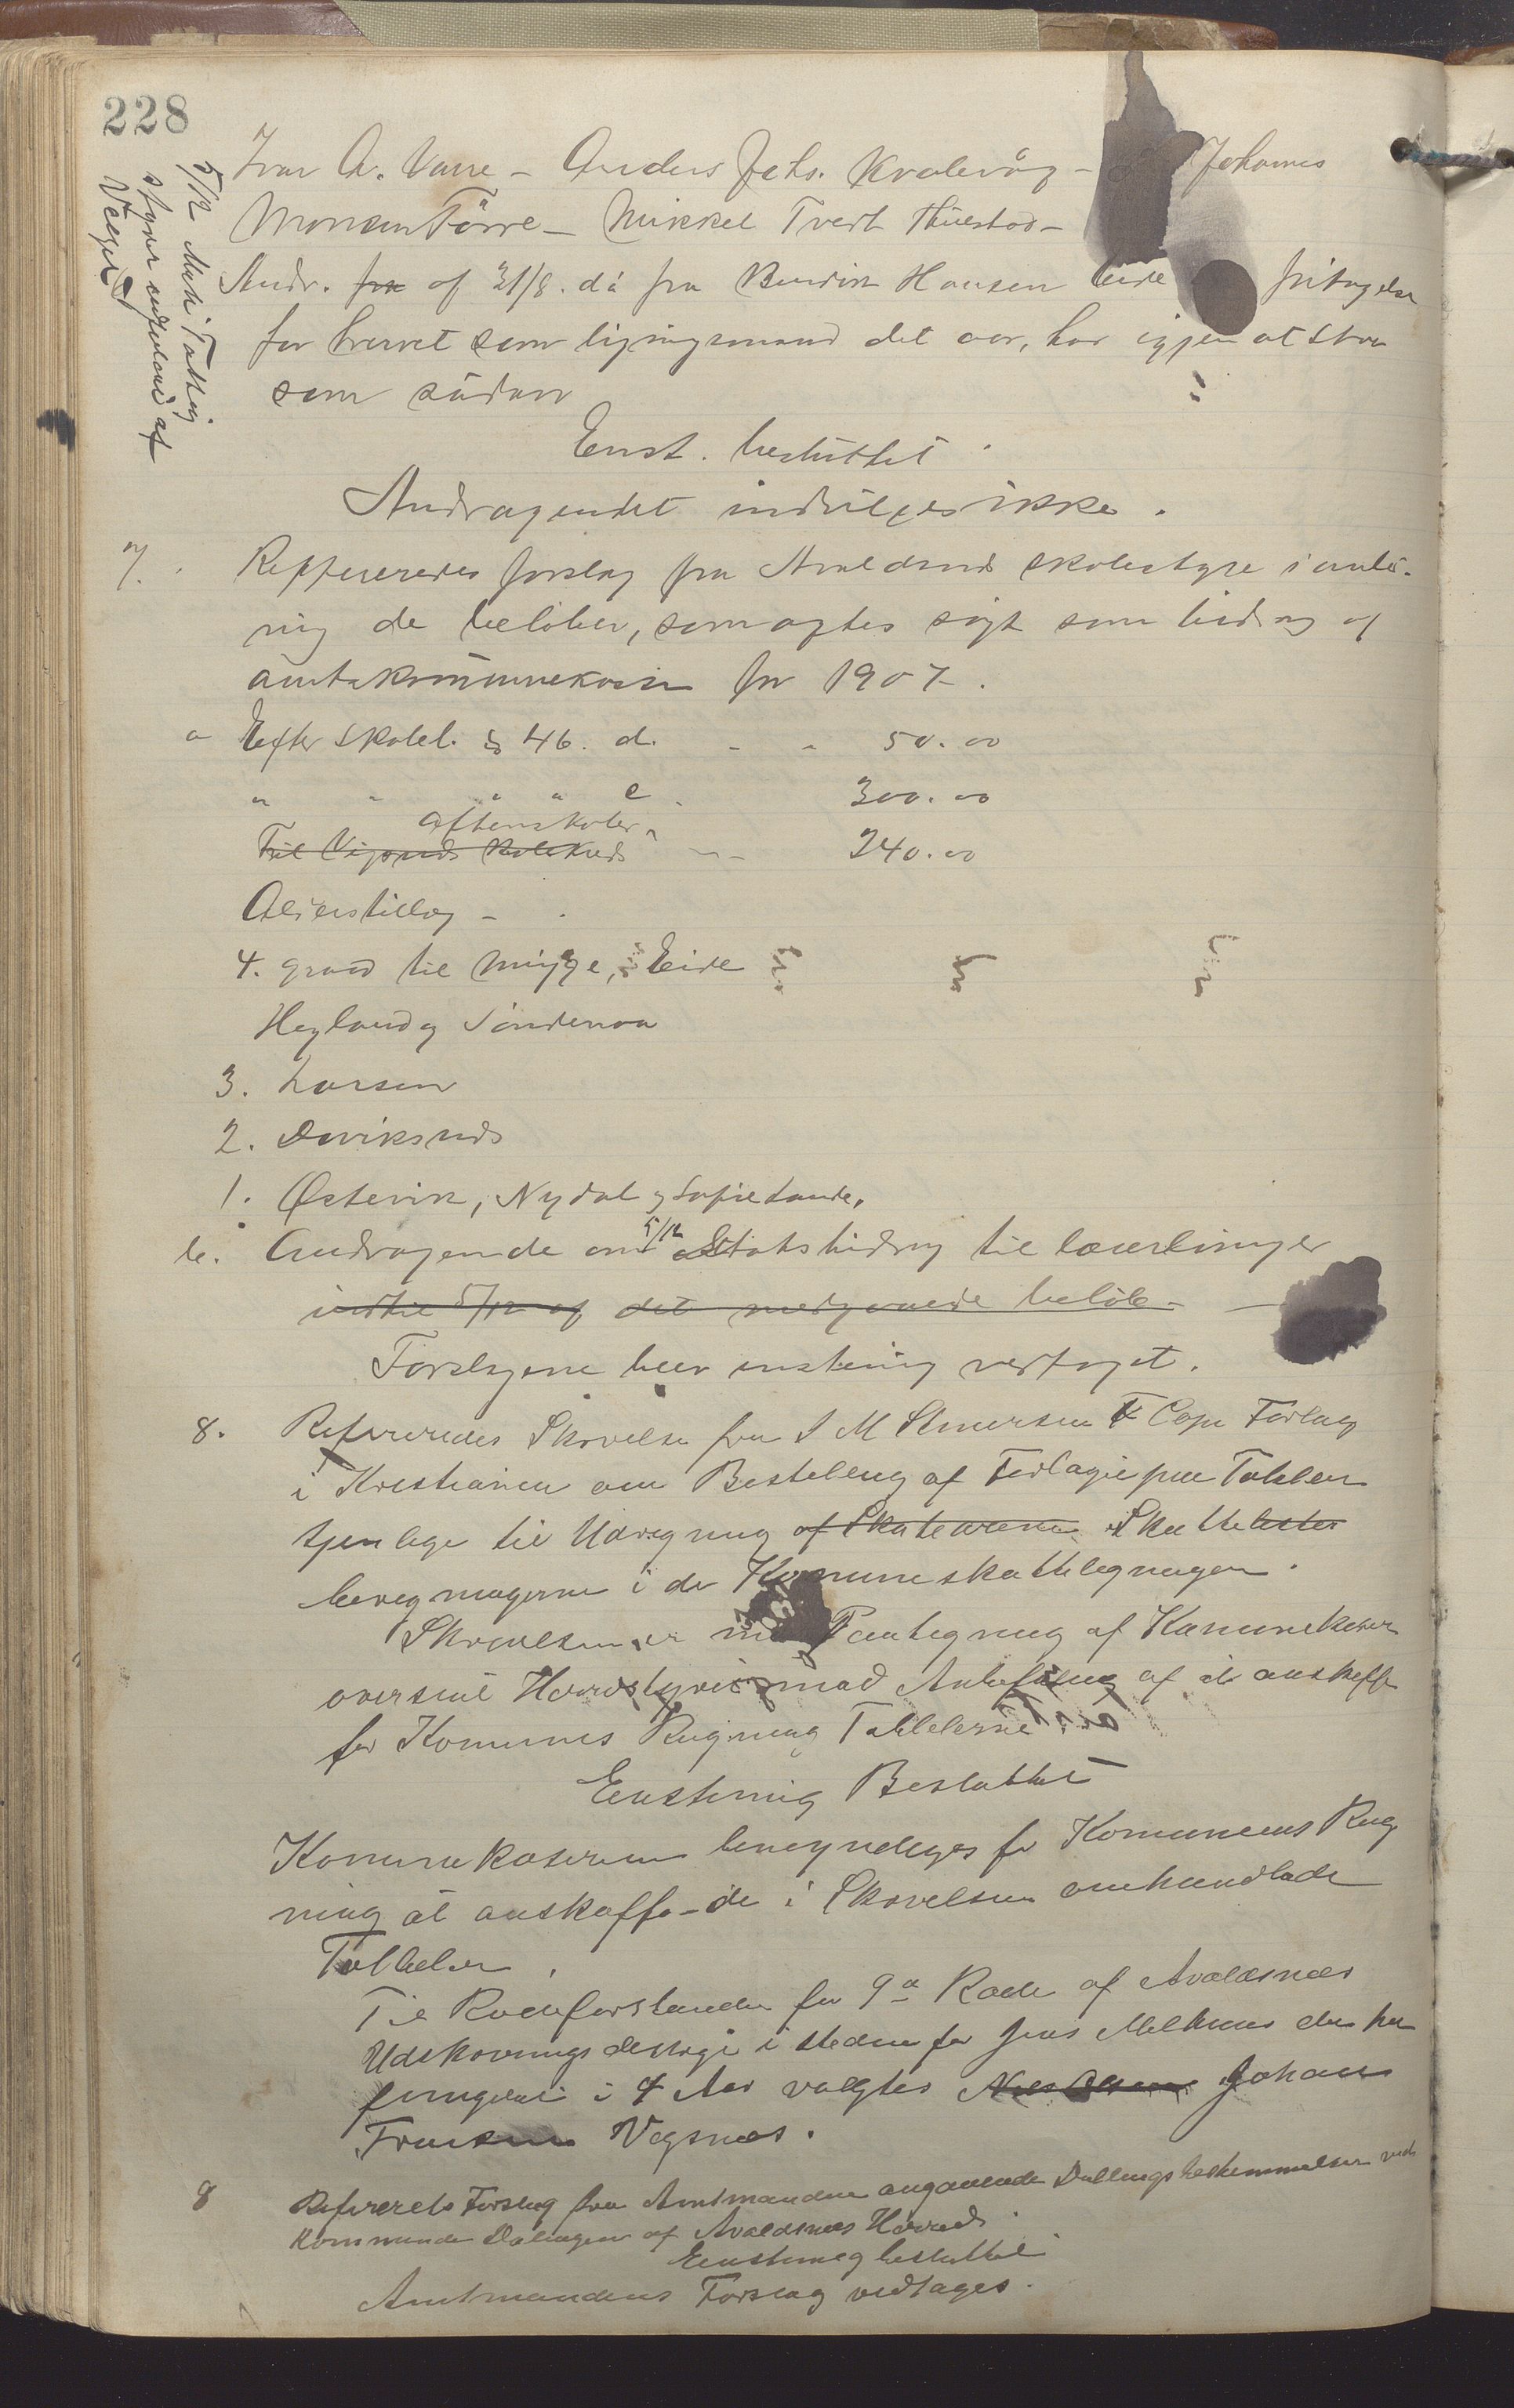 228
5/12 Mek. Tættig
styrer
Væge
Ivar A. Vaare - Anders Johs. Kvalevåg - Johannes
Monsen Törre - Mikkel Tveit Thuestad -
Andr. fra af 31/8. då fra Bendik Hansen Eide fritagelse
for hvervet som ligningsmand det aar, har igjen at staa
som sådan
Enst. besluttet
Andragendet indvilges ikke.
7. Reffereredes forslag fra Avaldsnes skolestyre i anled-
ning de beløber, som agtes søgt som bidrag af
amtskommunekassen for 1907.
a Efter skolel. § 46. d. - - 50.00
" " " " e 300.00
Aftenskoler
Til Vigsnes Folkebads - - 240.00
Alderstillæg -
4. grad til Mugge, Eide
Hegland og Söndenaa
3. Larsen
2. Daviksnes
1. Østevik, Nydal og Sofie Lande.
b. Andragende om 5/12 Statsbidrag til lærerlönninger
indtil 5/12 af det medgaaede belöb -
Forslagene blev enstemig vedtaget.
8. Refereredes Skrivelse fra S M Simersen & Cops Forlag
i Kristiania om Bestelling af Forlagte paa Tabeller
tjenlige til Udregning af Skatterne Skattelister
beregningerne i de Kommuneskatteligningen.
Skrivelsen er med Paategning af Kommunekaserer
oversent Herredstyret med Anbefaling af at anskaffe
for Komunes Regning Tabellerne
Eenstemig Besluttet
Komunekasereren bemyndiges for Komunens Reg
ning at anskaffe de i Skrivelsen omhandlede
Tabbeler
Til Rodeforstander for 9de Rode af Avaldsnes
Udskrivnings destrigt i stedene for Jens Melhuus der har
fungeret i 4 Aar valgtes Nils Olsen Johan
Fransen Vigsnes.
8 Refererets Forslag fra Amtmanden angaaende Dællings bestemmelser ved
Kommunde Dælinger af Avaldsnes Herred.
Eenstemig besluttet
Amtmandens Forslag vedtages.